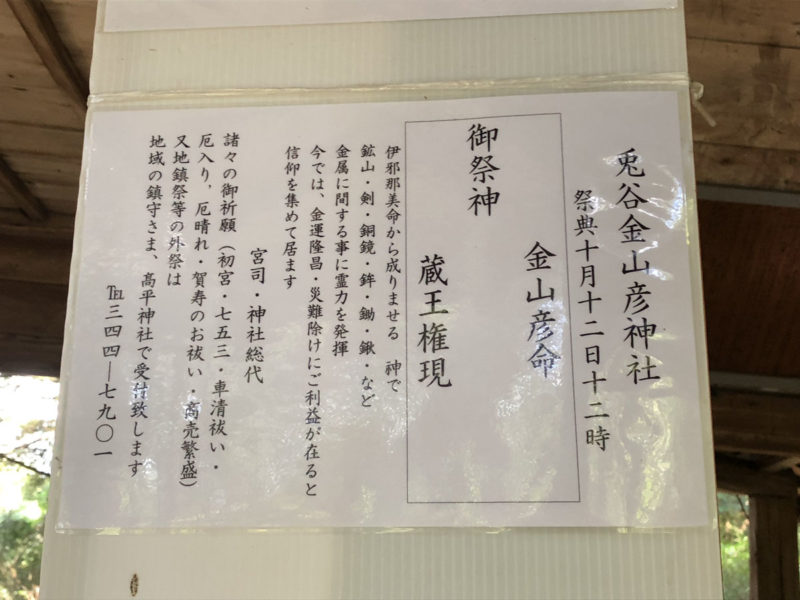 兎谷金山彦神社
祭典十月十二日十二時
金山彦命
御祭神
蔵王権現
伊邪那美命から成りませる　神で
鉱山・剣・銅鏡・鉾・鋤・鍬・など
金属に間する事に霊力を発揮
今では、金運隆昌・災難除けにご利益が在ると
信仰を集めて居ます
宮司・神社総代
諸々の御祈願（初宮・七五三・車清祓い・
厄入り，厄晴れ・賀寿のお祓い・商売繁盛）
又地鎮祭等の外祭は
地域の鎮守さま、髙平神社で受付致します
℡三四四―七九〇一